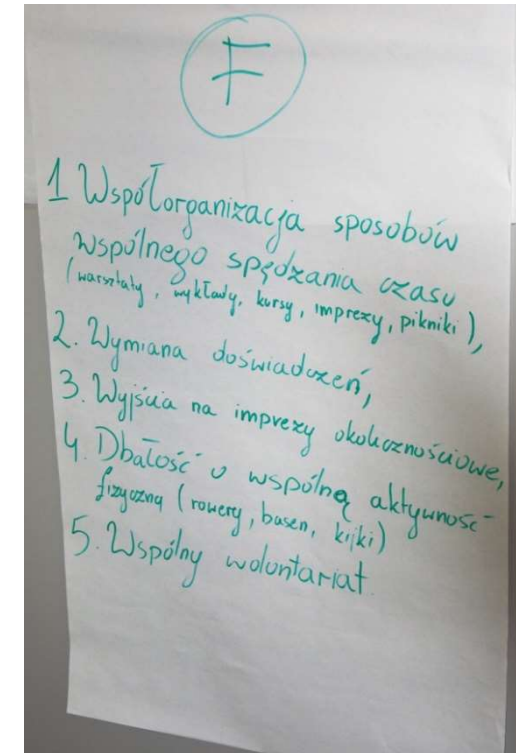 F
1 Współorganizacja sposobów
wspólnego spędzania czasu
(warsztaty, wykłady, kursy, imprezy, pikniki),
2. Wymiana doświadczeń,
3. Wyjścia na imprezy okolicznościowe,
4. Dbałość o wspólną aktywność
fizyczną (rowery, basen, kijki)
5. Wspólny wolontariat